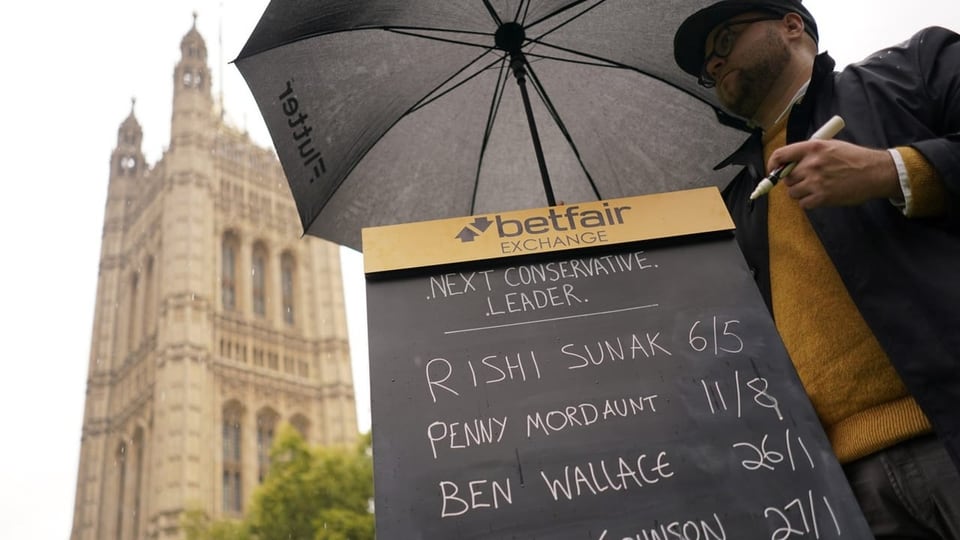 Flutter
betfair
EXCHANGE
.NEXT CONSERVATIVE.
.LEADER.
RISHI SUNAK 6/5
PENNY MORDAUNT 11/8
BEN WALLACE 26/1
JOHNSON 27/1